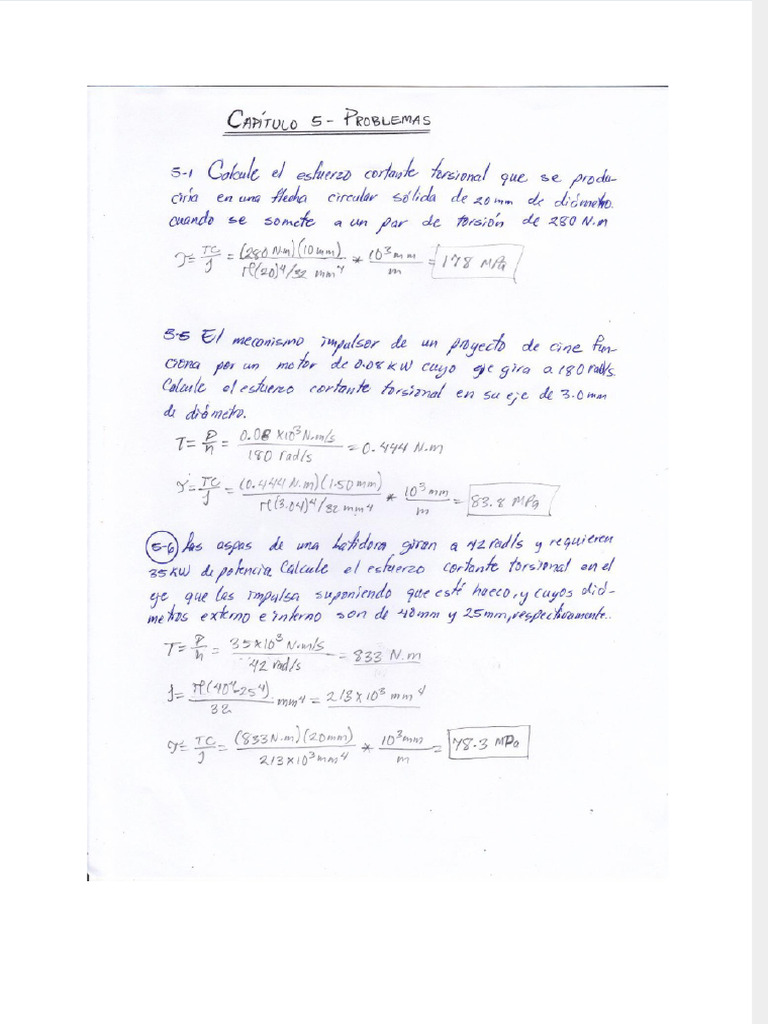 CAPÍTULO 5 - PROBLEMAS
5-1 Calcule el esfuerzo cortante torsional que se produ-
ciría en una flecha circular sólida de 20 mm de diámetro.
cuando se somete a un par de torsión de 280 N.m
τ = TC/J = (280 N.m)(10 mm) / π(20)⁴/32 mm⁴ * 10³ mm/m = 178 MPa
5-5 El mecanismo impulsor de un proyecto de cine fun-
ciona por un motor de 0.08 KW cuyo eje gira a 180 rad/s.
Calcule el esfuerzo cortante torsional en su eje de 3.0 mm
de diámetro.
T = P/n = 0.08 x10³ N.m/s / 180 rad/s = 0.444 N.m
τ = TC/J = (0.444 N.m)(1.50 mm) / π(3.04)⁴/32 mm⁴ * 10³ mm/m = 83.8 MPa
5-6 Las aspas de una batidora giran a 42 rad/s y requieren
35 KW de potencia Calcule el esfuerzo cortante torsional en el
eje que las impulsa suponiendo que esté hueco, y cuyos diá-
metros externo e interno son de 40mm y 25mm, respectivamente.
T = P/n = 35x10³ N.m/s / 42 rad/s = 833 N.m
J = π(40⁴-25⁴) / 32 mm⁴ = 213x10³ mm⁴
τ = TC/J = (833 N.m)(20mm) / 213x10³ mm⁴ * 10³ mm/m = 78.3 MPa